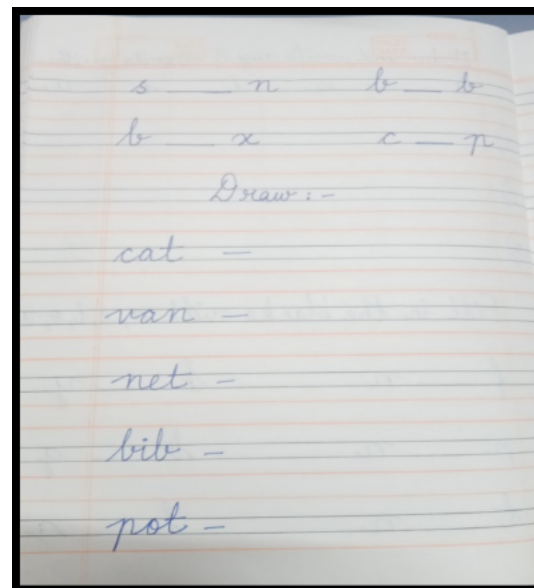 s __ n b __ b
b __ x c __ p
Draw :-
cat -
van -
net -
bib -
pot -